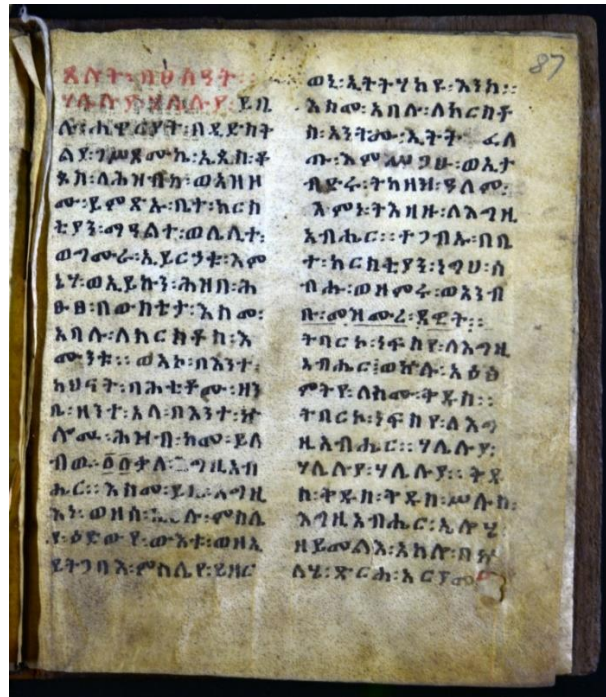 ጸሎት፡በ፱ሰዓት፡፡
ሃሌሉያ፡ሃሌሉያ፡ይቤ
ሉ፡ሐዋርያት፡በዲድስት
ልያ፡ገሥጾሙኬ፡ኤጲስ፡ቆ
ጶስ፡ለሕዝብከ፡ወአዝዞ
ሙ፡ይምጽኡ፡ቤተ፡ክርስ
ቲያን፡ማዓልተ፡ወሌሊተ፡
ወግሙራ፡ኢይርኃቁ፡እም
ኔሃ፡ወኢይኩን፡ሕዝበ፡ሕ
ፁፀ፡በውስቴታ፡እስመ፡
አባሉ፡ለክርስቶስ፡እ
ሙንቱ፡፡ወአኮ፡በእንተ፡
ከህናት፡በሕቲቶሙ፡ዘን
ቤ፡ዘንተ፡አላ፡በእንተ፡ኵ
ሎሙ፡ሕዝብ፡ከመ፡ይስ
ቃለ፡እግዚአብ
ሔር፡፡እስመ፡ይቤ፡እግዚ
እነ፡ወዘሰ፡ኢሀሉ፡ምስሌ
የ፡ዕድውየ፡ውእቱ፡ወዘኢ
ይትጋባእ፡ምስሌየ፡ይዘር
87
ወኒ፡ኢትትሃከዩ፡እንከ፡፡
እስመ፡አባሉ፡ለክርስቶ
ስ፡አንትሙ፡ኢትት ፈለ
ጡ፡እምሥጋሁ፡ወኢታ
ብድሩ፡ትካዘዝ፡ዓለመ፡
እምኑ፡ትእዛዙ፡ለእግዚ
አብሔር፡፡ተጋብኡ፡በቤ
ተ፡ክርስቲያን፡ነግሀ፡ሰ
ብሑ፡ወዘምሩ፡ወአንብ
ቡ፡መዝሙረ፡ዳዊት፡፡
ትባርኮ፡ነፍስየ፡ለእግዚ
አብሔር፡ወኵሉ፡አዕፅ
ምትየ፡ለስሙ፡ቅዱስ፡፡
ትባርኮ፡ነፍስየ፡ለእግ
ዚአብሔር፡፡ሃሌሉያ፡
ሃሌሉያ፡ሃሌሉያ፡፡ቅዱ
ስ፡ቅዱስ፡ቅዱስ፡ሥሉስ፡
እግዚአብሔር፡ኤሎሄ፡
ዘይመልእ፡አከሉ፡በኵ
ለሄ፡ጽርሐ፡አርያም